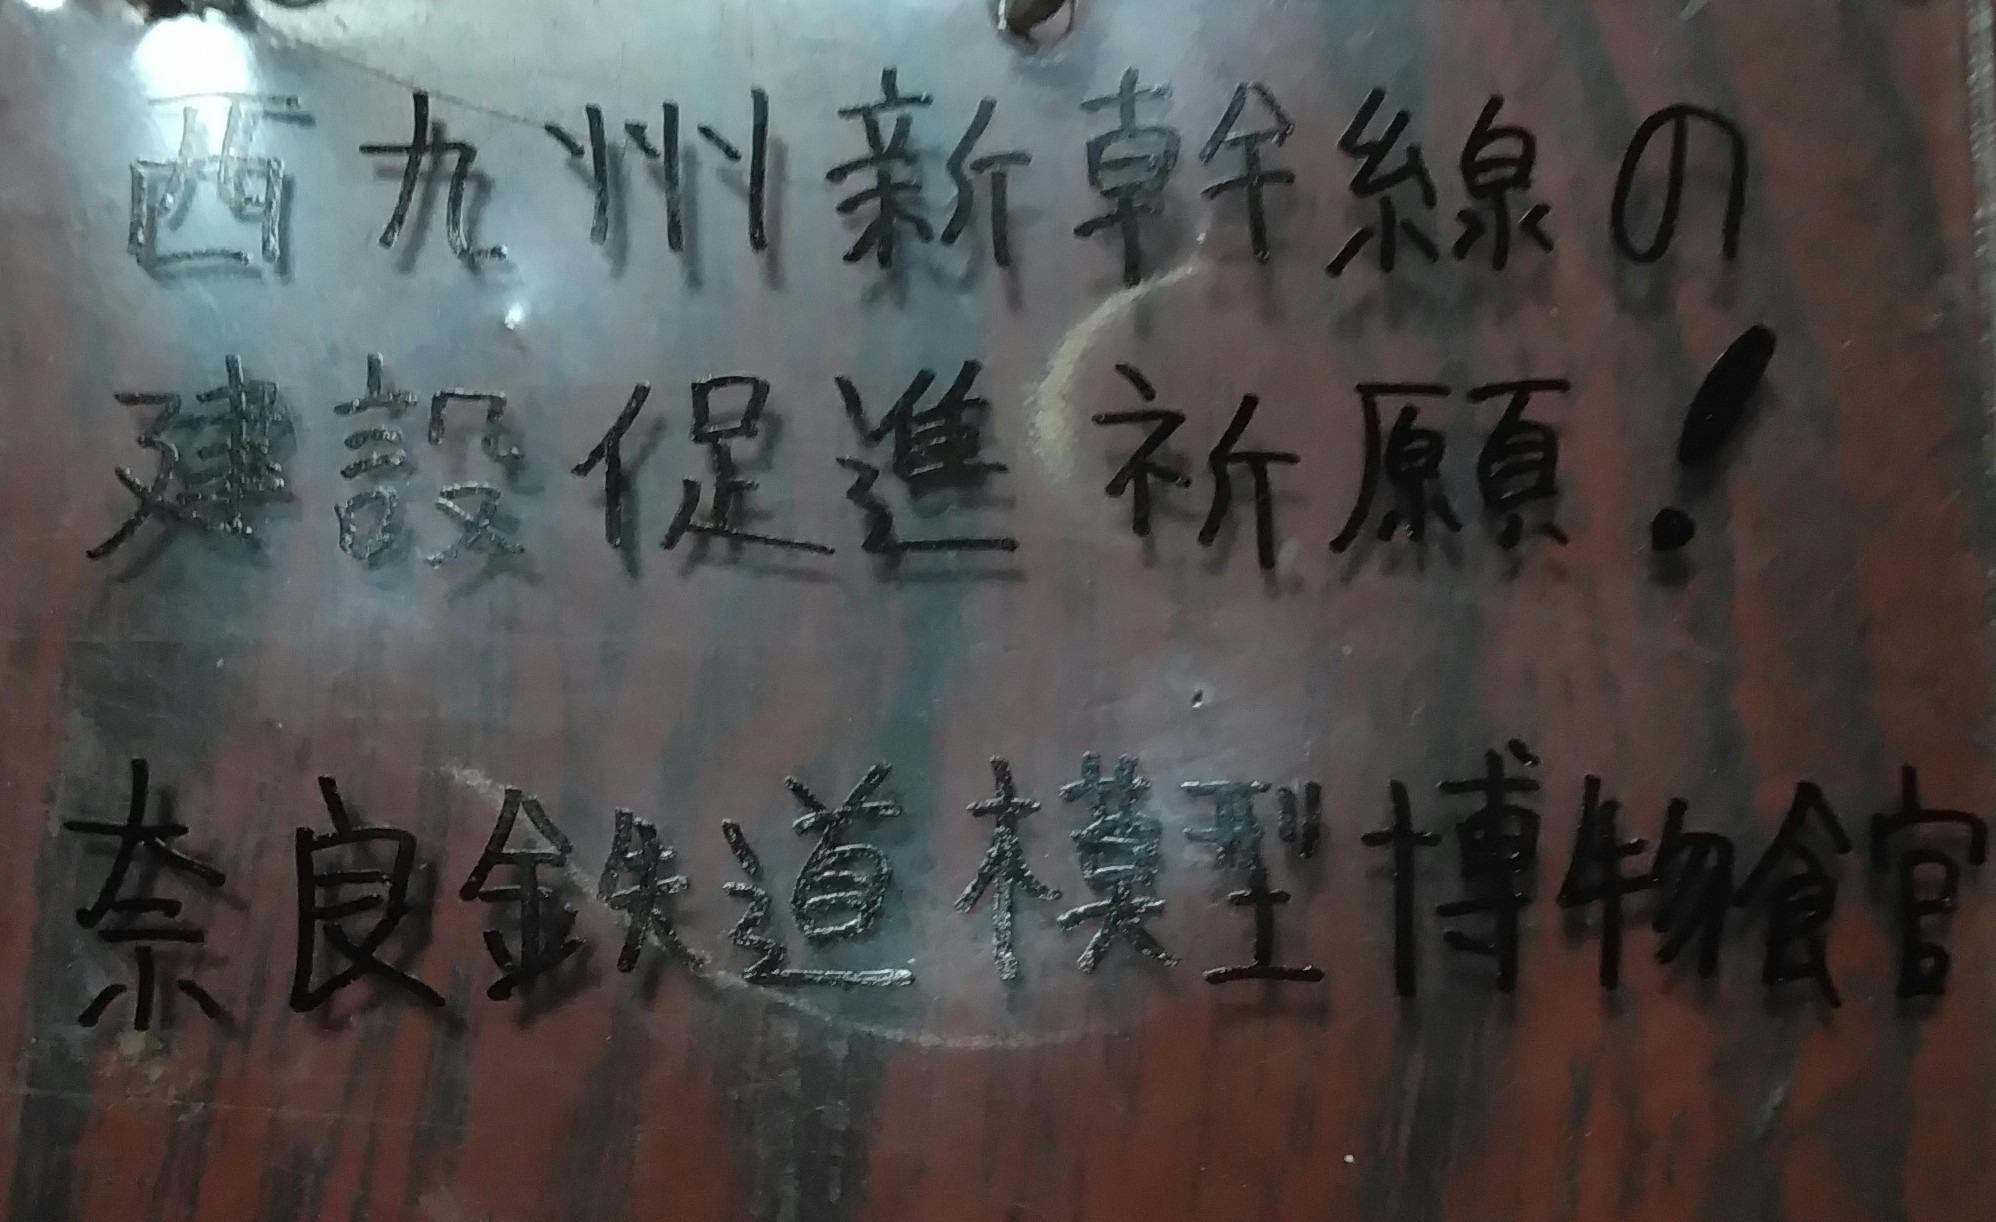 西九州新幹線の
建設促進祈願!
奈良鉄道模型博物館